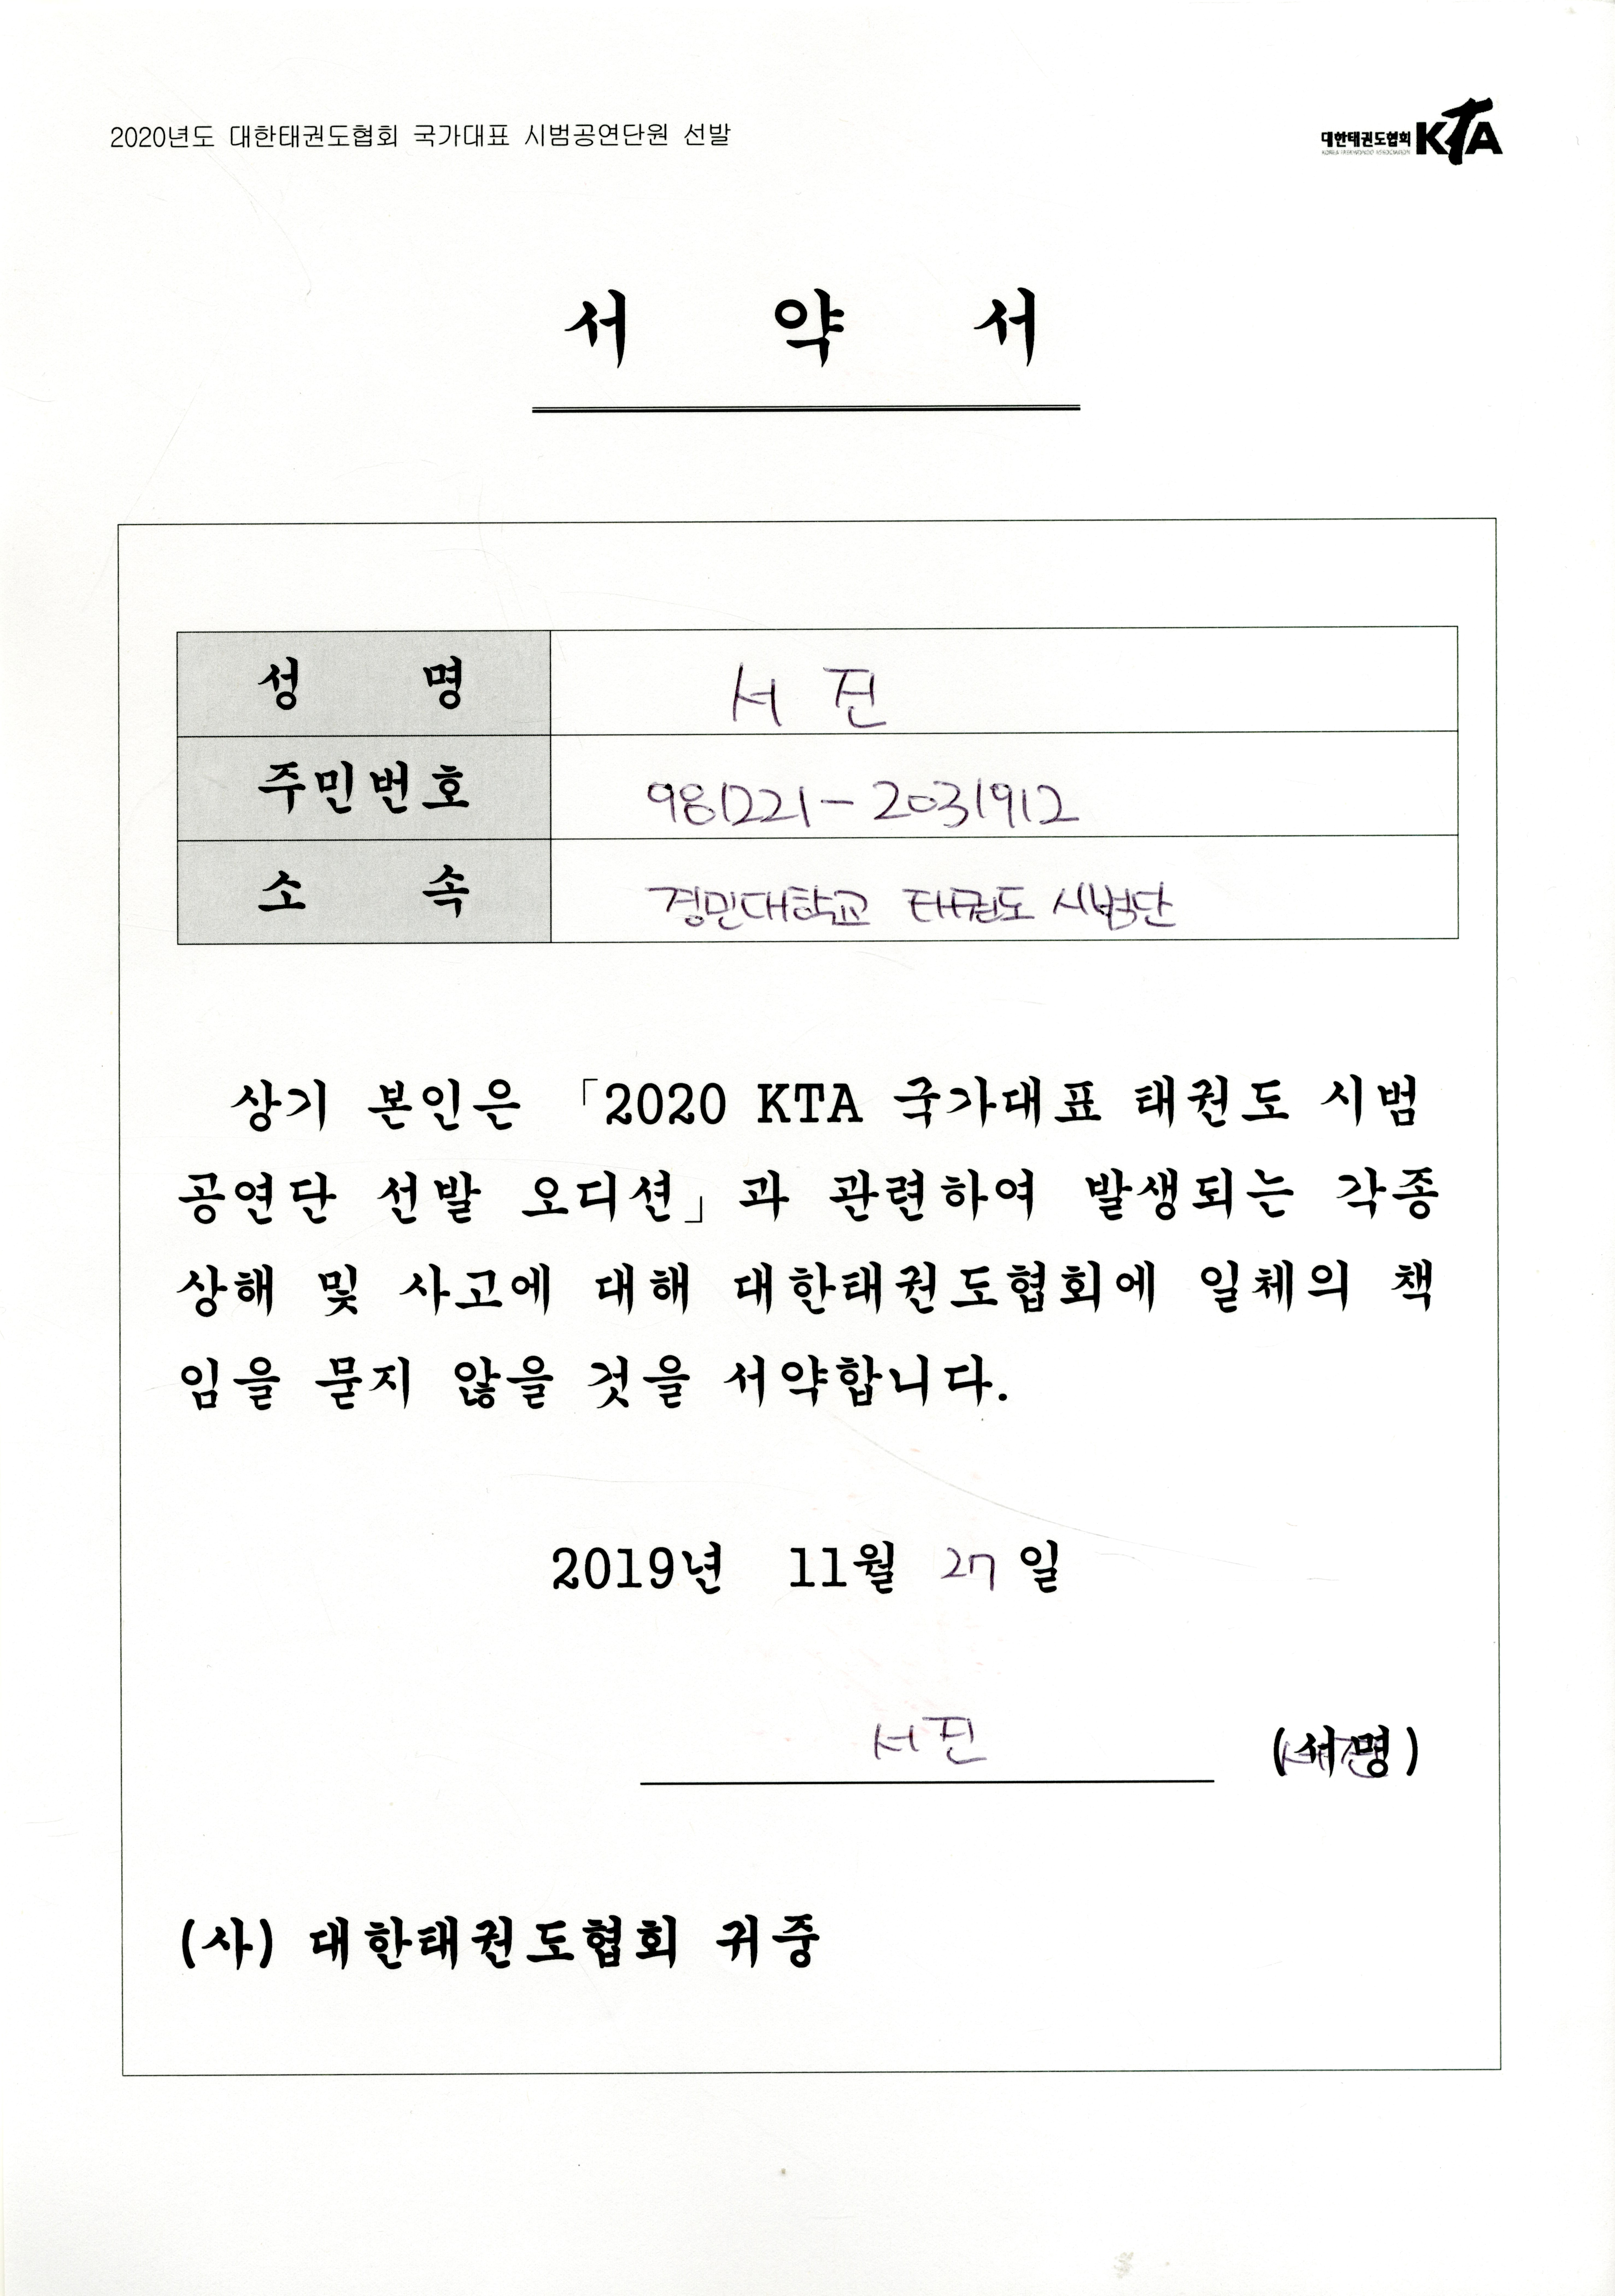 2020년도 대한태권도협회 국가대표 시범공연단원 선발
대한태권도협회 KTA
KOREA TAEKWONDO ASSOCIATION
서 약 서
성 명 서 진
주민번호 981221-2031912
소 속 경민대학교 태권도 시범단
상기 본인은 「2020 KTA 국가대표 태권도 시범
공연단 선발 오디션」과 관련하여 발생되는 각종
상해 및 사고에 대해 대한태권도협회에 일체의 책
임을 묻지 않을 것을 서약합니다.
2019년 11월 27일
서진 (서명) 서진
(사) 대한태권도협회 귀중